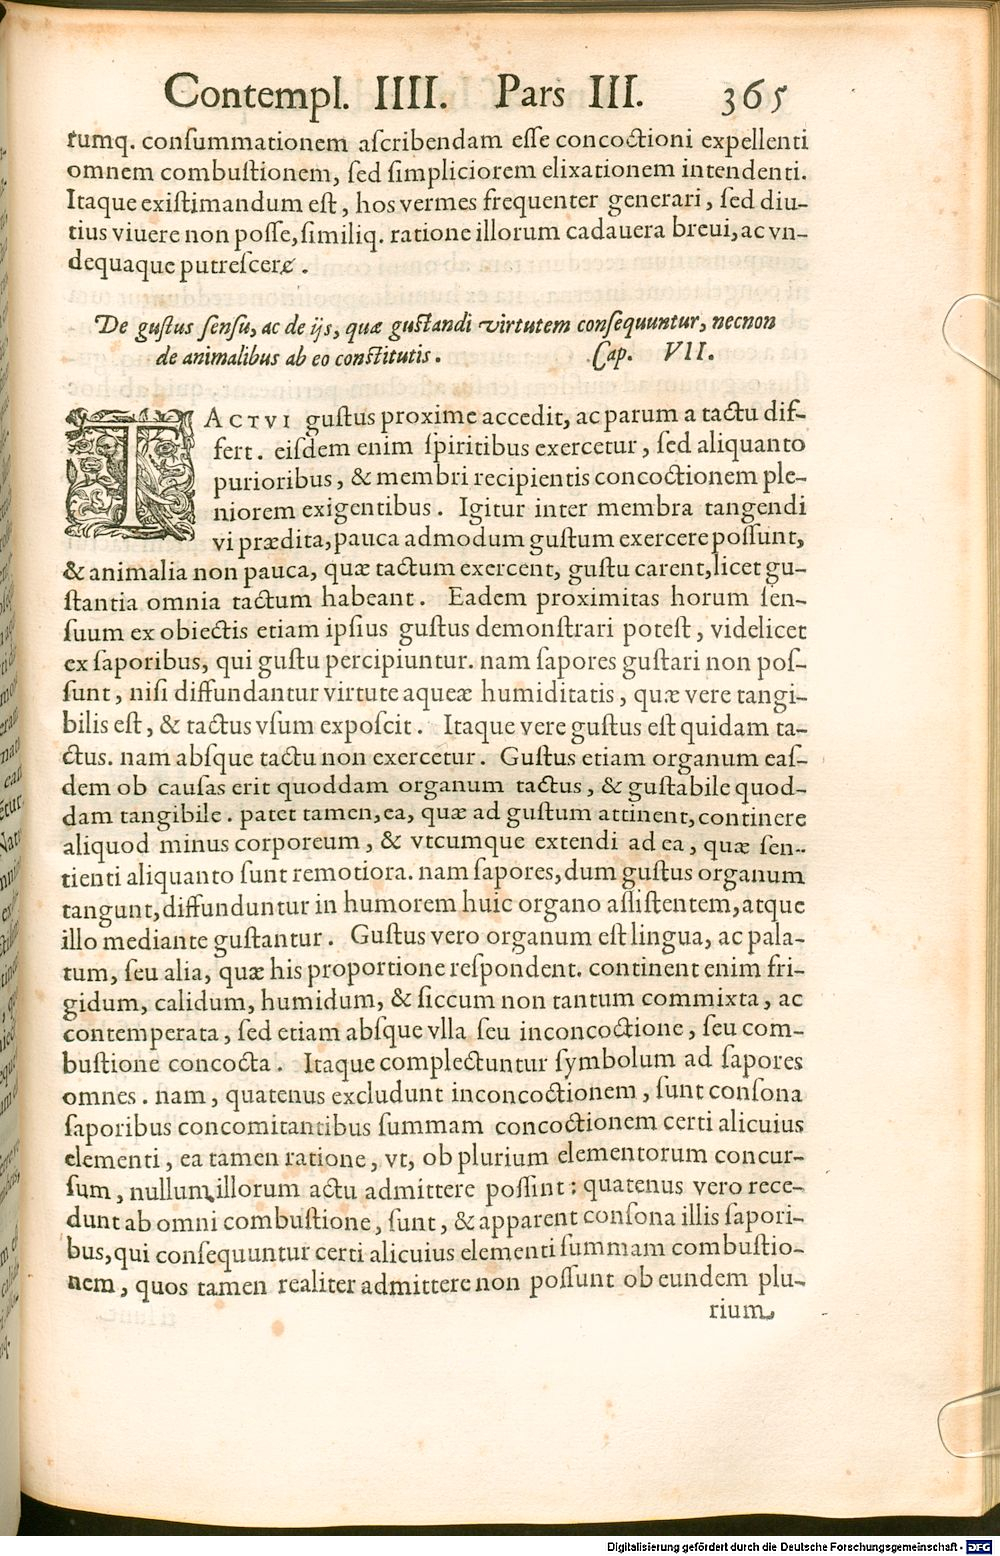 Contempl. IIII. Pars III. 365
tumq. conſummationem aſcribendam eſſe concoctioni expellenti
omnem combuſtionem, ſed ſimpliciorem elixationem intendenti.
Itaque exiſtimandum eſt, hos vermes frequenter generari, ſed diu-
tius viuere non poſſe, ſimiliq. ratione illorum cadauera breui, ac vn-
dequaque putreſcere.
De guſtus ſenſu, ac de ijs, quæ guſtandi virtutem conſequuntur, necnon
de animalibus ab eo conſtitutis. Cap. VII.
TACTVI guſtus proxime accedit, ac parum a tactu dif-
fert. eiſdem enim ſpiritibus exercetur, ſed aliquanto
purioribus, & membri recipientis concoctionem ple-
niorem exigentibus. Igitur inter membra tangendi
vi prædita, pauca admodum guſtum exercere poſſunt,
& animalia non pauca, quæ tactum exercent, guſtu carent, licet gu-
ſtantia omnia tactum habeant. Eadem proximitas horum ſen-
ſuum ex obiectis etiam ipſius guſtus demonſtrari poteſt, videlicet
ex ſaporibus, qui guſtu percipiuntur. nam ſapores guſtari non poſ-
ſunt, niſi diffundantur virtute aqueæ humiditatis, quæ vere tangi-
bilis eſt, & tactus vſum expoſcit. Itaque vere guſtus eſt quidam ta-
ctus. nam abſque tactu non exercetur. Guſtus etiam organum eaſ-
dem ob cauſas erit quoddam organum tactus, & guſtabile quod-
dam tangibile. patet tamen, ea, quæ ad guſtum attinent, continere
aliquod minus corporeum, & vtcumque extendi ad ea, quæ ſen-
tienti aliquanto ſunt remotiora. nam ſapores, dum guſtus organum
tangunt, diffunduntur in humorem huic organo aſſiſtentem, atque
illo mediante guſtantur. Guſtus vero organum eſt lingua, ac pala-
tum, ſeu alia, quæ his proportione reſpondent. continent enim fri-
gidum, calidum, humidum, & ſiccum non tantum commixta, ac
contemperata, ſed etiam abſque vlla ſeu inconcoctione, ſeu com-
buſtione concocta. Itaque complectuntur ſymbolum ad ſapores
omnes. nam, quatenus excludunt inconcoctionem, ſunt conſona
ſaporibus concomitantibus ſummam concoctionem certi alicuius
elementi, ea tamen ratione, vt, ob plurium elementorum concur-
ſum, nullum illorum actu admittere poſſint: quatenus vero rece-
dunt ab omni combuſtione, ſunt, & apparent conſona illis ſapori-
bus, qui conſequuntur certi alicuius elementi ſummam combuſtio-
nem, quos tamen realiter admittere non poſſunt ob eundem plu-
rium
Digitalisierung gefördert durch die Deutsche Forschungsgemeinschaft - DFG